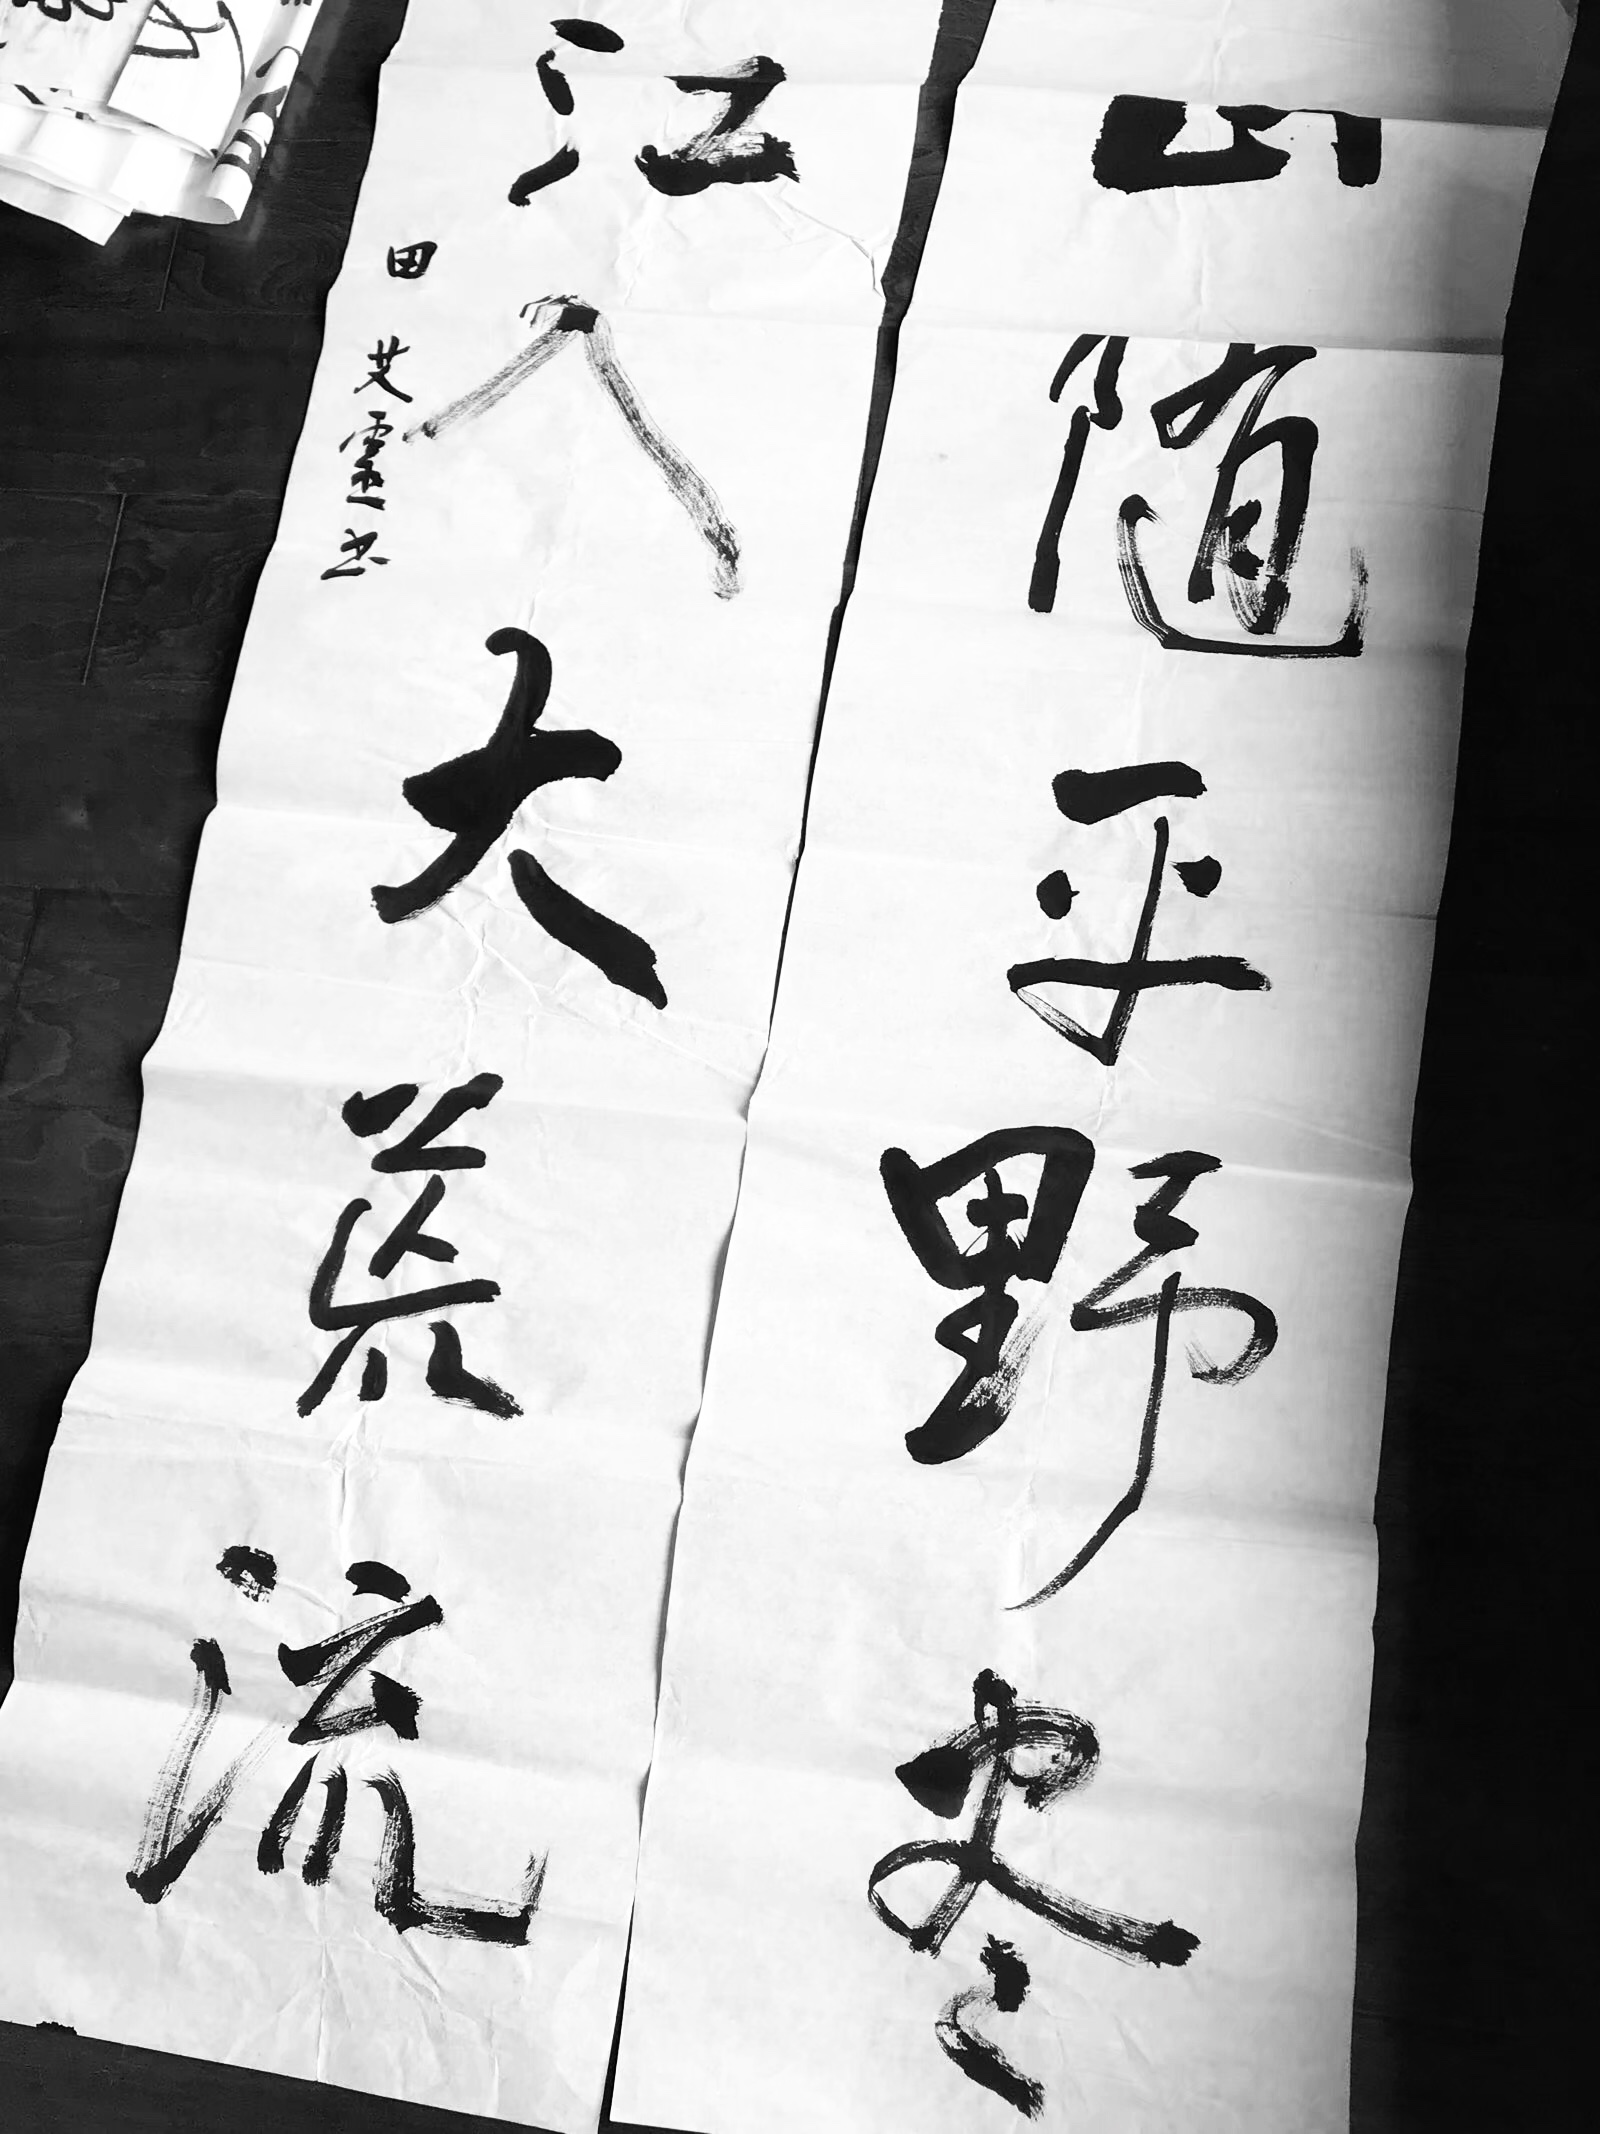 山随平野尽
江入大荒流
田艾靈书